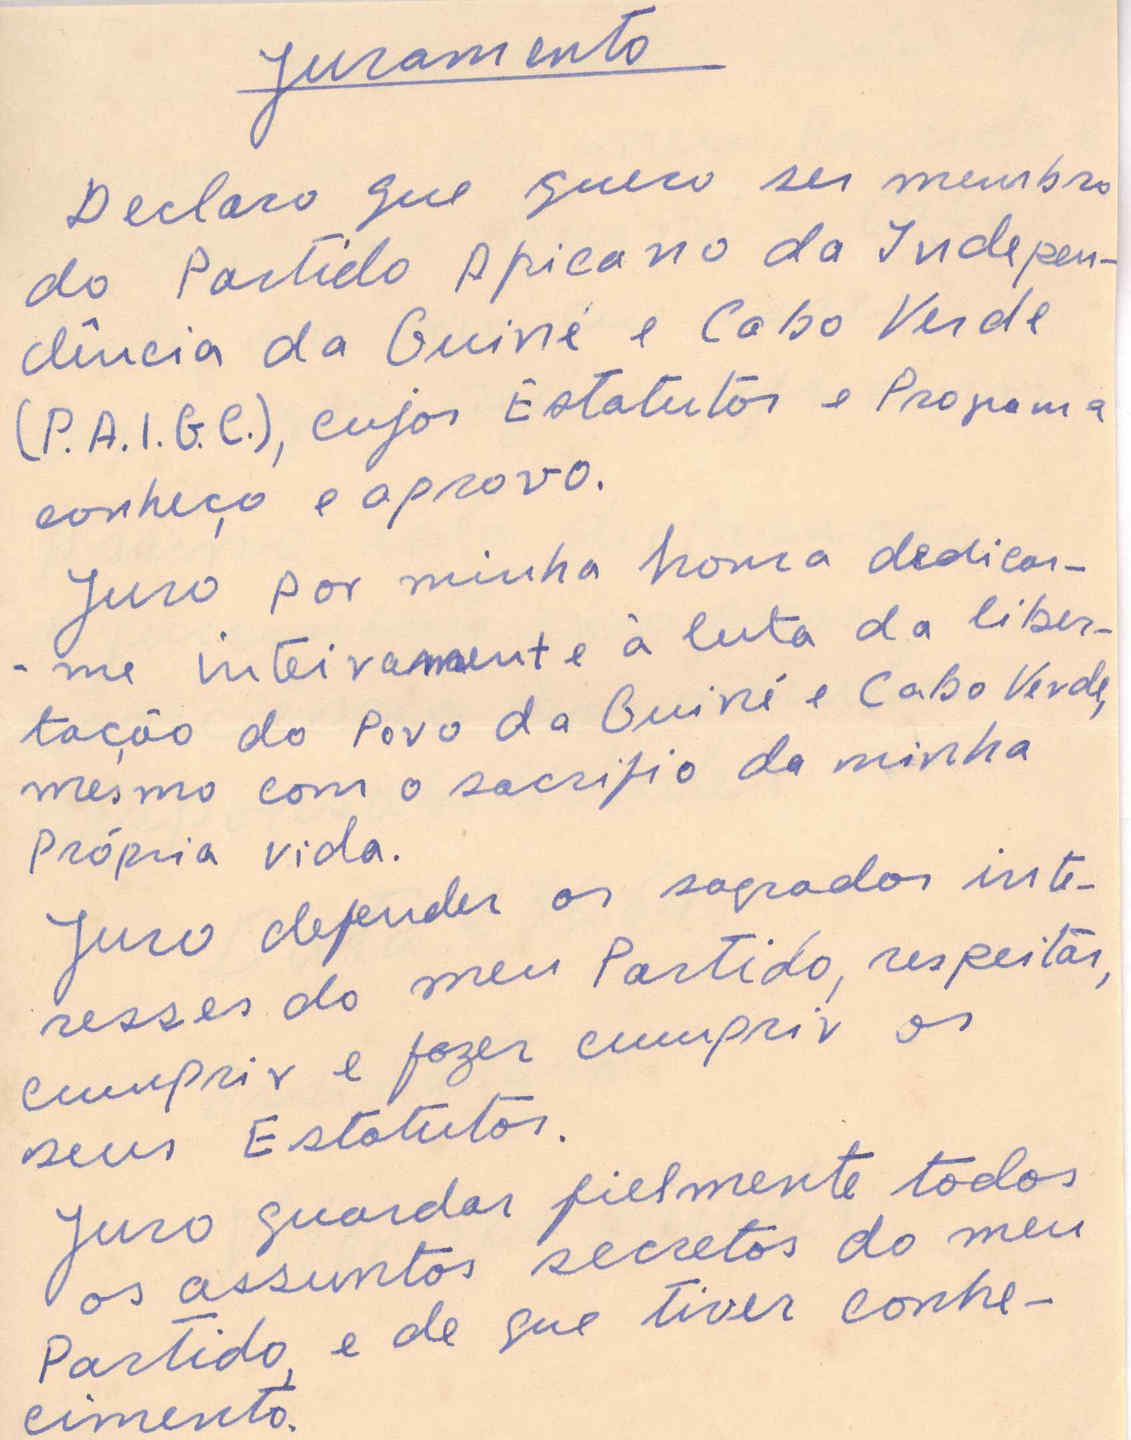 Juramento
Declaro que quero ser membro
do Partido Africano da Indepen-
dência da Guiné e Cabo Verde
(P.A.I.G.C.), cujos Estatutos e Programa
conheço e aprovo.
Juro por minha honra dedicar-
-me inteiramente à luta da liber-
tação do Povo da Guiné e Cabo Verde,
mesmo com o sacrifio da minha
própria vida.
Juro defender os sagrados inte-
resses do meu Partido, respeitar,
cumprir e fazer cumprir os
seus Estatutos.
Juro guardar fielmente todos
os assuntos secretos do meu
Partido, e de que tiver conhe-
cimento.